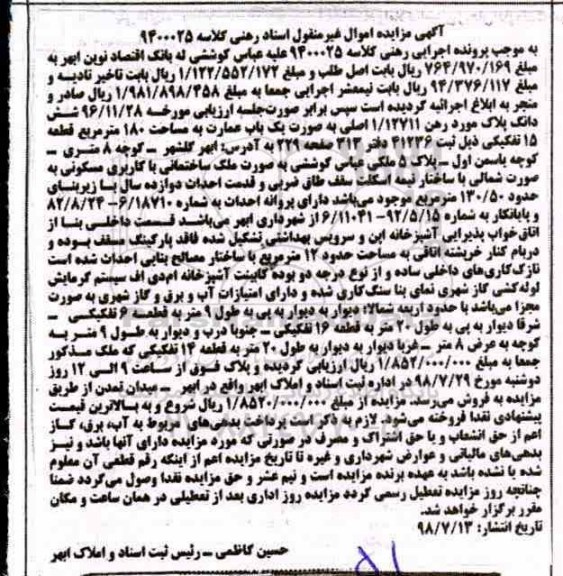 آگهی مزایده اموال غیرمنقول اسناد رهنی کلاسه ۹۴۰۰۰۲۵
به موجب پرونده اجرایی رهنی کلاسه ۹۴۰۰۰۲۵ علیه عباس کوششی له بانک اقتصاد نوین ابهر به
مبلغ ۷۶۴/۹۷۰/۱۶۹ ریال بابت اصل طلب و مبلغ ۱/۱۲۲/۵۵۲/۱۷۲ ریال بابت تاخیر تادیه و
مبلغ ۹۴/۳۷۶/۱۱۷ ریال بابت نیمعشر اجرایی جمعا به مبلغ ۱/۹۸۱/۸۹۸/۴۵۸ ریال صادر و
منجر به ابلاغ اجرائیه گردیده است سپس برابر صورت‌جلسه ارزیابی مورخه ۹۶/۱۱/۲۸ شش
دانگ پلاک مورد رهن ۱/۱۲۷۱۱ اصلی به صورت یک باب عمارت به مساحت ۱۸۰ مترمربع قطعه
۱۵ تفکیکی ذیل ثبت ۲۱۳۳۶ دفتر ۱۲۲ صفحه ۲۲۹ به آدرس: ابهر گلشهر ــ کوچه ۸ متری ــ
کوچه یاسمن اول ــ پلاک ۵ ملکی عباس کوششی به صورت ملک ساختمانی با کاربری مسکونی به
صورت شمالی با ساختار نیمه اسکلت سقف طاق ضربی و قدمت احداث دوازده سال با زیربنای
۱۳۰/۵۰ مترمربع موجود می‌باشد دارای پروانه احداث به شماره ۶/۱۸۷۱۰– ۸۲/۸/۲۴
و پایانکار به شماره ۹۲/۵/۱۵– ۶/۱۱۰۴۱ از شهرداری ابهر می‌باشد قسمت داخلی بنا از
اتاق‌خواب پذیرایی آشپزخانه اپن و سرویس بهداشتی تشکیل شده فاقد پارکینگ مسقف بوده و
دربام کنار خرپشته اتاقی به مساحت حدود ۱۲ مترمربع با ساختار مصالح بنایی احداث شده است
نازک‌کاری‌های داخلی ساده و از نوع درجه دو بوده کابینت آشپزخانه ام‌دی اف سیستم گرمایش
لوله‌کشی گاز شهری نمای بنا سنگ‌کاری شده و دارای امتیازات آب و برق و گاز شهری به صورت
مجزا می‌باشد با حدود اربعه: شمالا دیوار به دیوار به پی به طول ۹ متر به قطعه ۶ تفکیکی ــ
شرقا دیوار به پی به طول ۲۰ متر به قطعه ۱۶ تفکیکی ــ جنوبا درب و دیوار به طول ۹ متر به
کوچه به عرض ۸ متر ــ غربا دیوار به دیوار به طول ۲۰ متر به قطعه ۱۴ تفکیکی که ملک مذکور
جمعا به مبلغ ۱/۸۵۲/۰۰۰/۰۰۰ ریال ارزیابی گردیده و پلاک فوق از ساعت ۹ الی ۱۲ روز
دوشنبه مورخ ۹۸/۷/۲۹ در اداره ثبت اسناد و املاک ابهر واقع در ابهر ــ میدان تمدن از طریق
مزایده به فروش می‌رسد. مزایده از مبلغ ۱/۸۵۲۰/۰۰۰/۰۰۰ ریال شروع و به بالاترین قیمت
پیشنهادی نقدا فروخته می‌شود. لازم به ذکر است پرداخت بدهی‌های مربوط به آب، برق، گاز
اعم از حق انشعاب و یا حق اشتراک و مصرف در صورتی که مورد مزایده دارای آنها باشد و نیز
بدهی‌های مالیاتی و عوارض شهرداری و غیره تا تاریخ مزایده اعم از اینکه رقم قطعی آن معلوم
شده یا نشده باشد به عهده برنده مزایده است و نیم عشر و حق مزایده نقدا وصول می‌گردد ضمنا
چنانچه روز مزایده تعطیل رسمی گردد مزایده روز اداری بعد از تعطیلی در همان ساعت و مکان
مقرر برگزار خواهد شد.
تاریخ انتشار: ۹۸/۷/۱۳
حسین کاظمی ــ رئیس ثبت اسناد و املاک ابهر